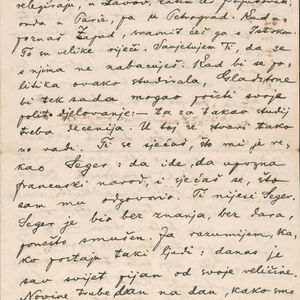 relegiraju, u Lavov, zatim do
onda u Pariz, pa u Petrograd. Kad
poznaš Zapad, sravnit ćeš ga s Istokom.
To su velike riječi. Savjetujem Ti, da se
s njima ne nabacuješ. Kad bi se po-
litika ovako studirala, Gladstone
bi tek sada mogao početi svoje
polit. djelovanje: — ta za takav studij
treba decenija. U toj se stvari tako
ne radi. Ti se sjećaš, što mi je re-
kao Seger: da ide, da upozna
francuski narod, i sjećaš se, što
sam mu odgovorio. Ti nijesi Seger.
Seger je bio bez znanja, bez dara,
ponešto smušen. Ja razumijem, ka-
ko postaju taki ljudi: danas je
sav svijet pijan od svoje veličine.
Novine trube dan na dan, kako smo